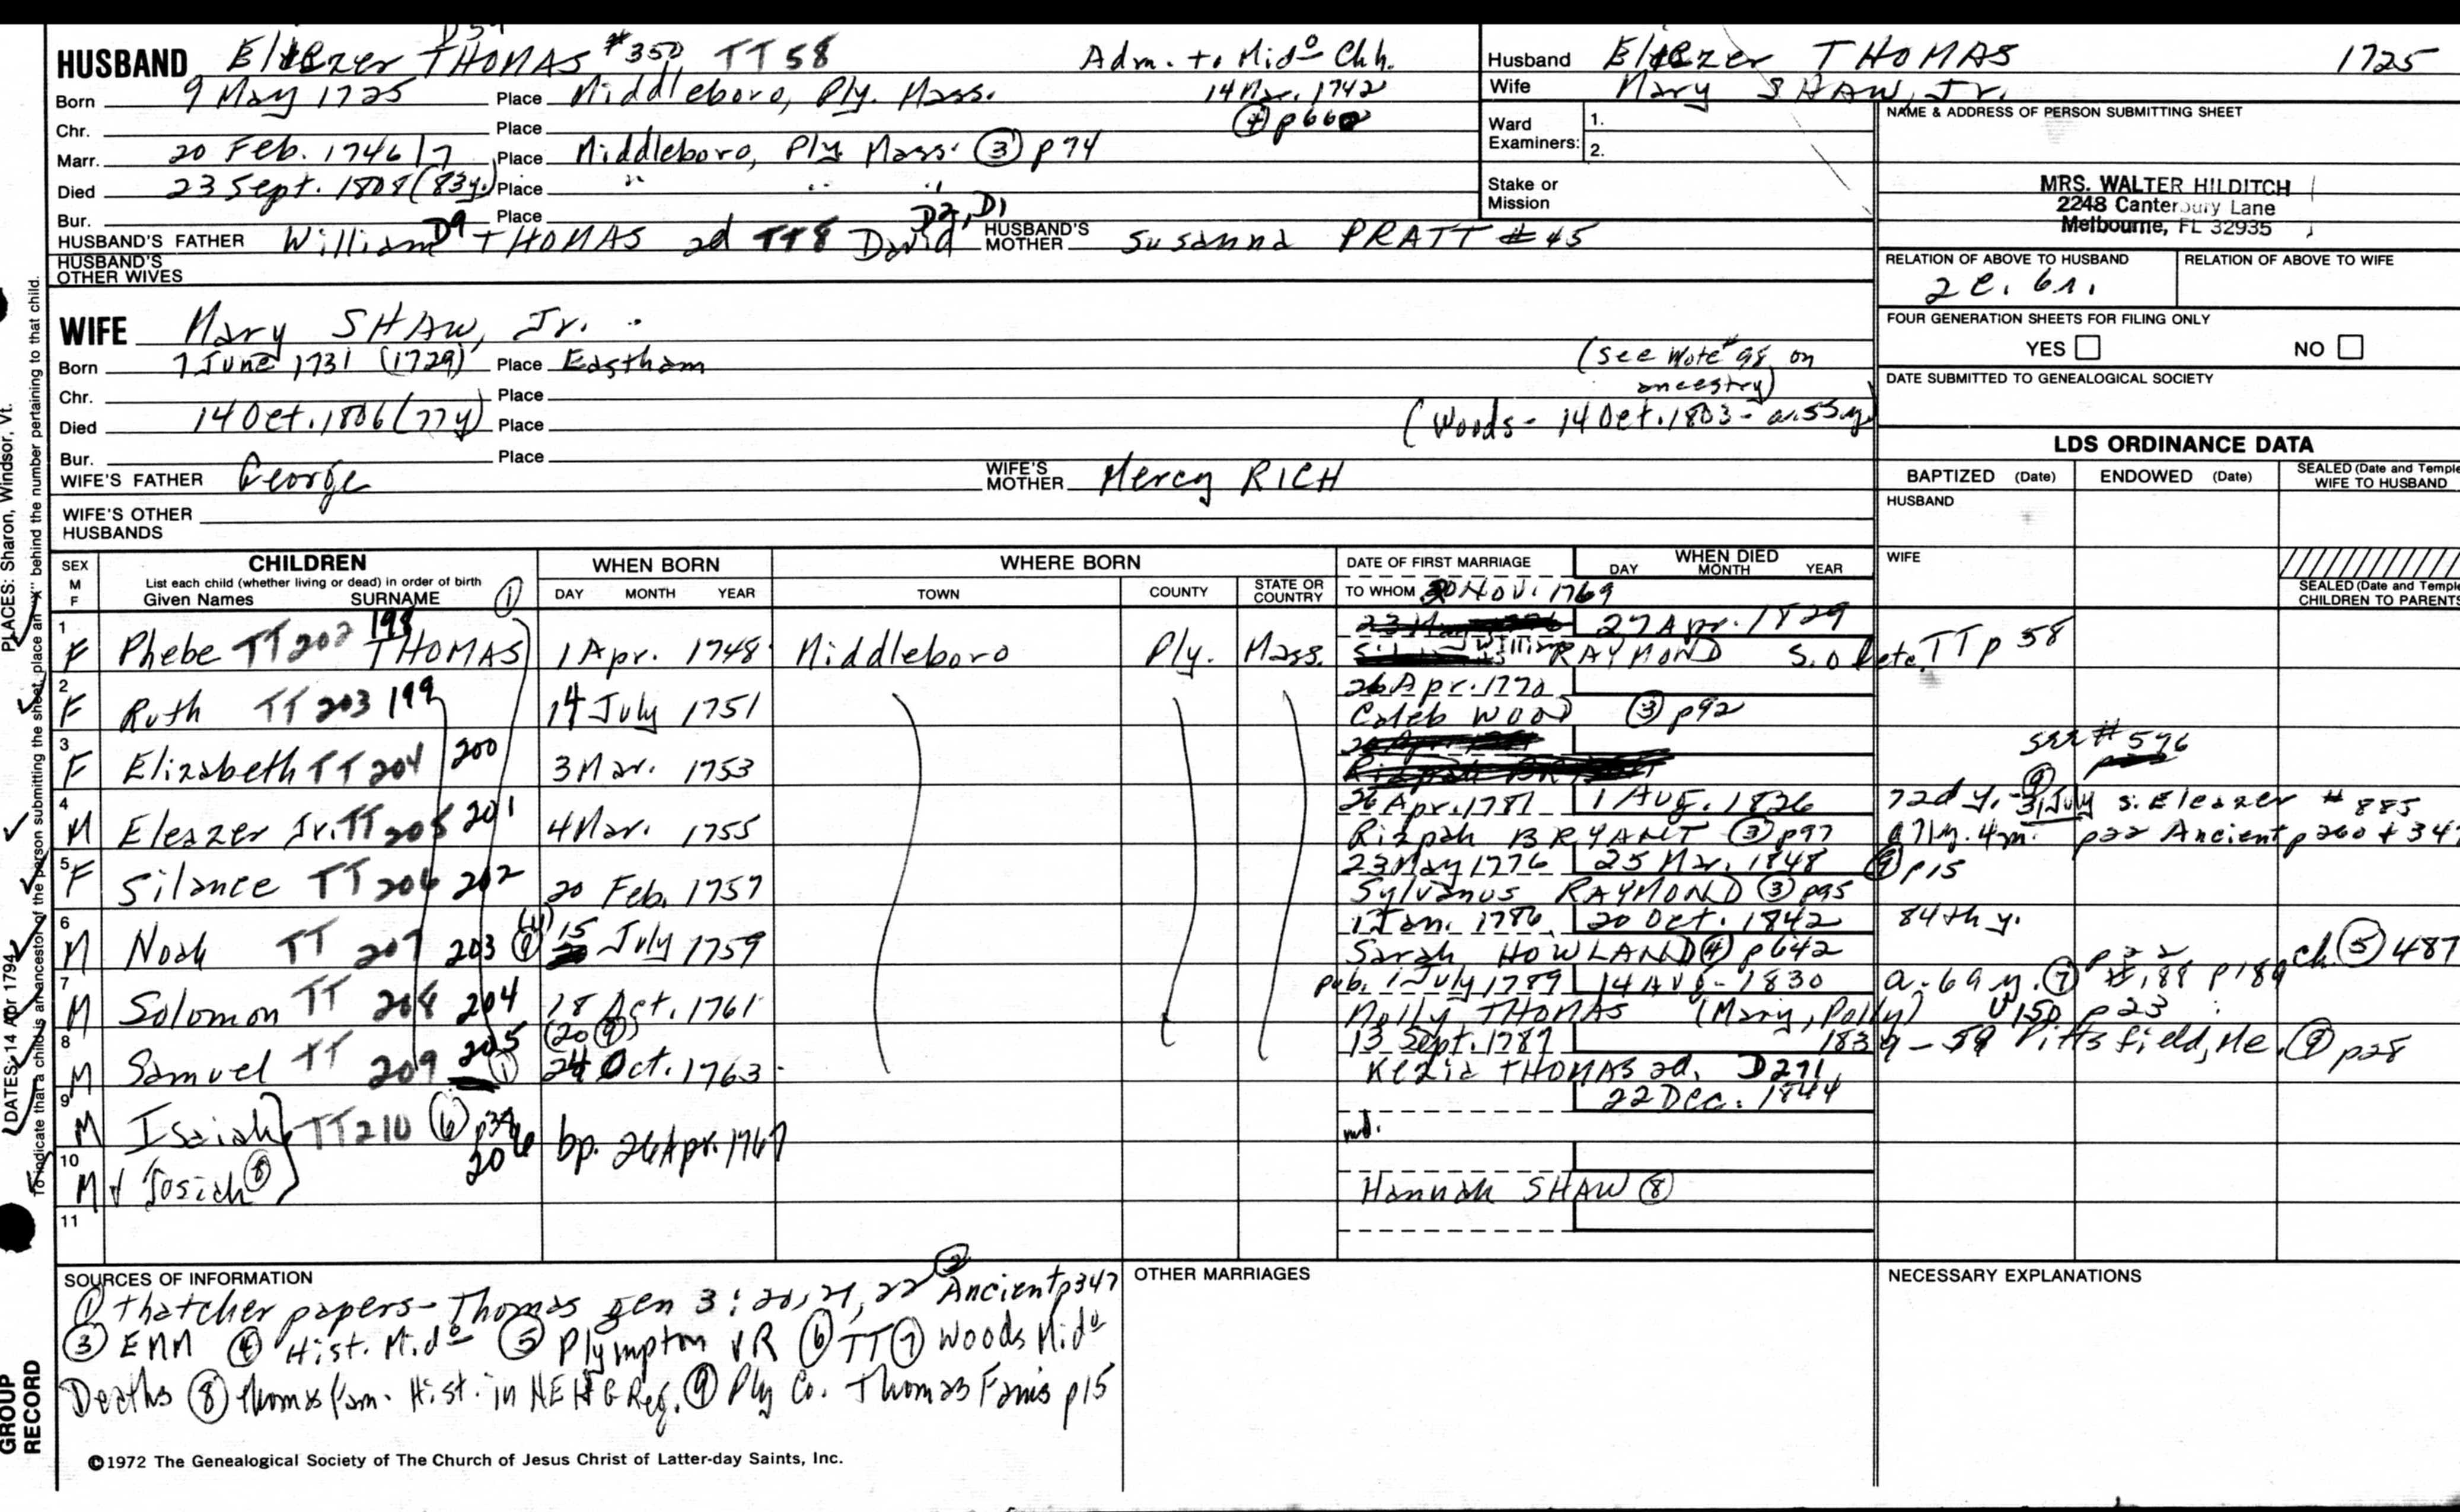 HUSBAND Eliezer THOMAS #350 TT 58 Adm. to Mido Chh.
Born 9 May 1725 Place Middleboro, Ply. Mass. 14 Mar. 1742
Chr. Place ④ p660
Marr. 20 Feb. 1746/7 Place Middleboro, Ply Mass. ③ p74
Died 23 Sept. 1808 (83y.) Place " " "
Bur. Place
HUSBAND'S FATHER William D9 THOMAS 2d TT8 David D2, D1 HUSBAND'S MOTHER Susanna PRATT #45
HUSBAND'S OTHER WIVES
WIFE Mary SHAW, Jr.
Born 7 June 1731 (1729) Place Eastham (See Note #98 on ancestry)
Chr. Place
Died 14 Oct. 1806 (77y) Place (Woods - 14 Oct. 1803 - a. 55 y.
Bur. Place
WIFE'S FATHER George WIFE'S MOTHER Mercy RICH
WIFE'S OTHER HUSBANDS
Husband Eliezer THOMAS 1725
Wife Mary SHAW, Jr.
Ward Examiners: 1. 2.
Stake or Mission
NAME & ADDRESS OF PERSON SUBMITTING SHEET
MRS. WALTER HILDITCH
2248 Canterbury Lane
Melbourne, FL 32935
RELATION OF ABOVE TO HUSBAND RELATION OF ABOVE TO WIFE
FOUR GENERATION SHEETS FOR FILING ONLY
YES NO
DATE SUBMITTED TO GENEALOGICAL SOCIETY
LDS ORDINANCE DATA
BAPTIZED (Date) ENDOWED (Date) SEALED (Date and Temple) WIFE TO HUSBAND
HUSBAND
WIFE
SEALED (Date and Temple) CHILDREN TO PARENTS
SEX M F CHILDREN WHEN BORN WHERE BORN DATE OF FIRST MARRIAGE WHEN DIED
List each child (whether living or dead) in order of birth DAY MONTH YEAR
Given Names SURNAME ① DAY MONTH YEAR TOWN COUNTY STATE OR COUNTRY TO WHOM
30 Nov. 1769
1 F Phebe TT 202 198 THOMAS 1 Apr. 1748 Middleboro Ply. Mass. 27 Apr. 1829
William RAYMOND TT p 58
2 F Ruth TT 203 199 14 July 1751 26 Apr. 1770
Caleb WOOD ③ p92
3 F Elizabeth TT 204 200 3 Mar. 1753
#596
4 M Eleazer Jr. TT 205 201 4 Mar. 1755 26 Apr. 1781 1 Aug. 1826 72d y. - ⑨ 31 July s. Eleazer #885
Rizpah BRYANT ③ p97 a 71y. 4m. p22 Ancient p260 + 347
5 F Silance TT 206 202 20 Feb. 1757 23 May 1776 25 Mar. 1848 ⑨ p15
Sylvanus RAYMOND ③ p95
6 M Noah TT 207 203 15 July 1759 1 Jan. 1786 20 Oct. 1842 84th y.
Sarah HOWLAND ④ p642 p22 ch. ⑤ 487
7 M Solomon TT 208 204 18 Oct. 1761 pub. 1 July 1789 14 Aug. 1830 a. 69 y. ⑦ #188 p189
Molly THOMAS (Mary, Polly) p23
8 M Samuel TT 209 205 ① (20 ⑨) 24 Oct. 1763 13 Sept. 1787 Pittsfield, Me. ⑨ p28
Kezia THOMAS 2d. D271
9 M Isaiah TT 210 ⑥ 206 bp. 26 Apr. 1767 22 Dec. 1844
md.
10 M Josiah ⑧
Hannah SHAW ⑧
11
SOURCES OF INFORMATION
① Thatcher papers - Thomas gen 3: 20, 21, 22 ② Ancient p347
③ EMM ④ Hist. Mido ⑤ Plympton VR ⑥ TT ⑦ Woods Mido
Deaths ⑧ Thomas fam. Hist. in NEHG Reg. ⑨ Ply Co. Thomas Fams p15
OTHER MARRIAGES
NECESSARY EXPLANATIONS
©1972 The Genealogical Society of The Church of Jesus Christ of Latter-day Saints, Inc.
PLACES: Sharon, Windsor, Vt.
DATES: 14 Apr 1794
To indicate that a child is an ancestor of the person submitting the sheet, place an "X" behind the number pertaining to that child.
GROUP RECORD